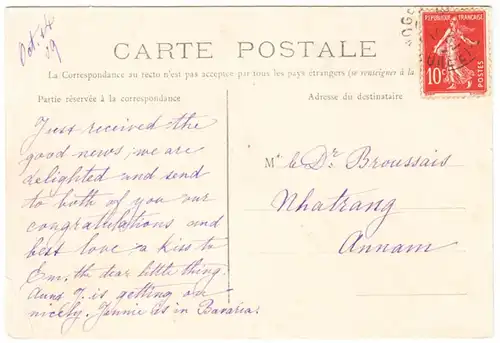 Oct. 24
09
CARTE POSTALE
La Correspondance au recto n'est pas acceptée par tous les pays étrangers (se renseigner à la
Partie réservée à la correspondance
Adresse du destinataire
RÉPUBLIQUE FRANÇAISE
10c
POSTES
Just received the
good news, we are
delighted and send
to both of you our
congratulations and
best love a kiss to
Em. the dear little thing.
Aunt J. is getting on
nicely. Jennie is in Bavaria.
Mr le Dr. Broussais
Nhatrang
Annam